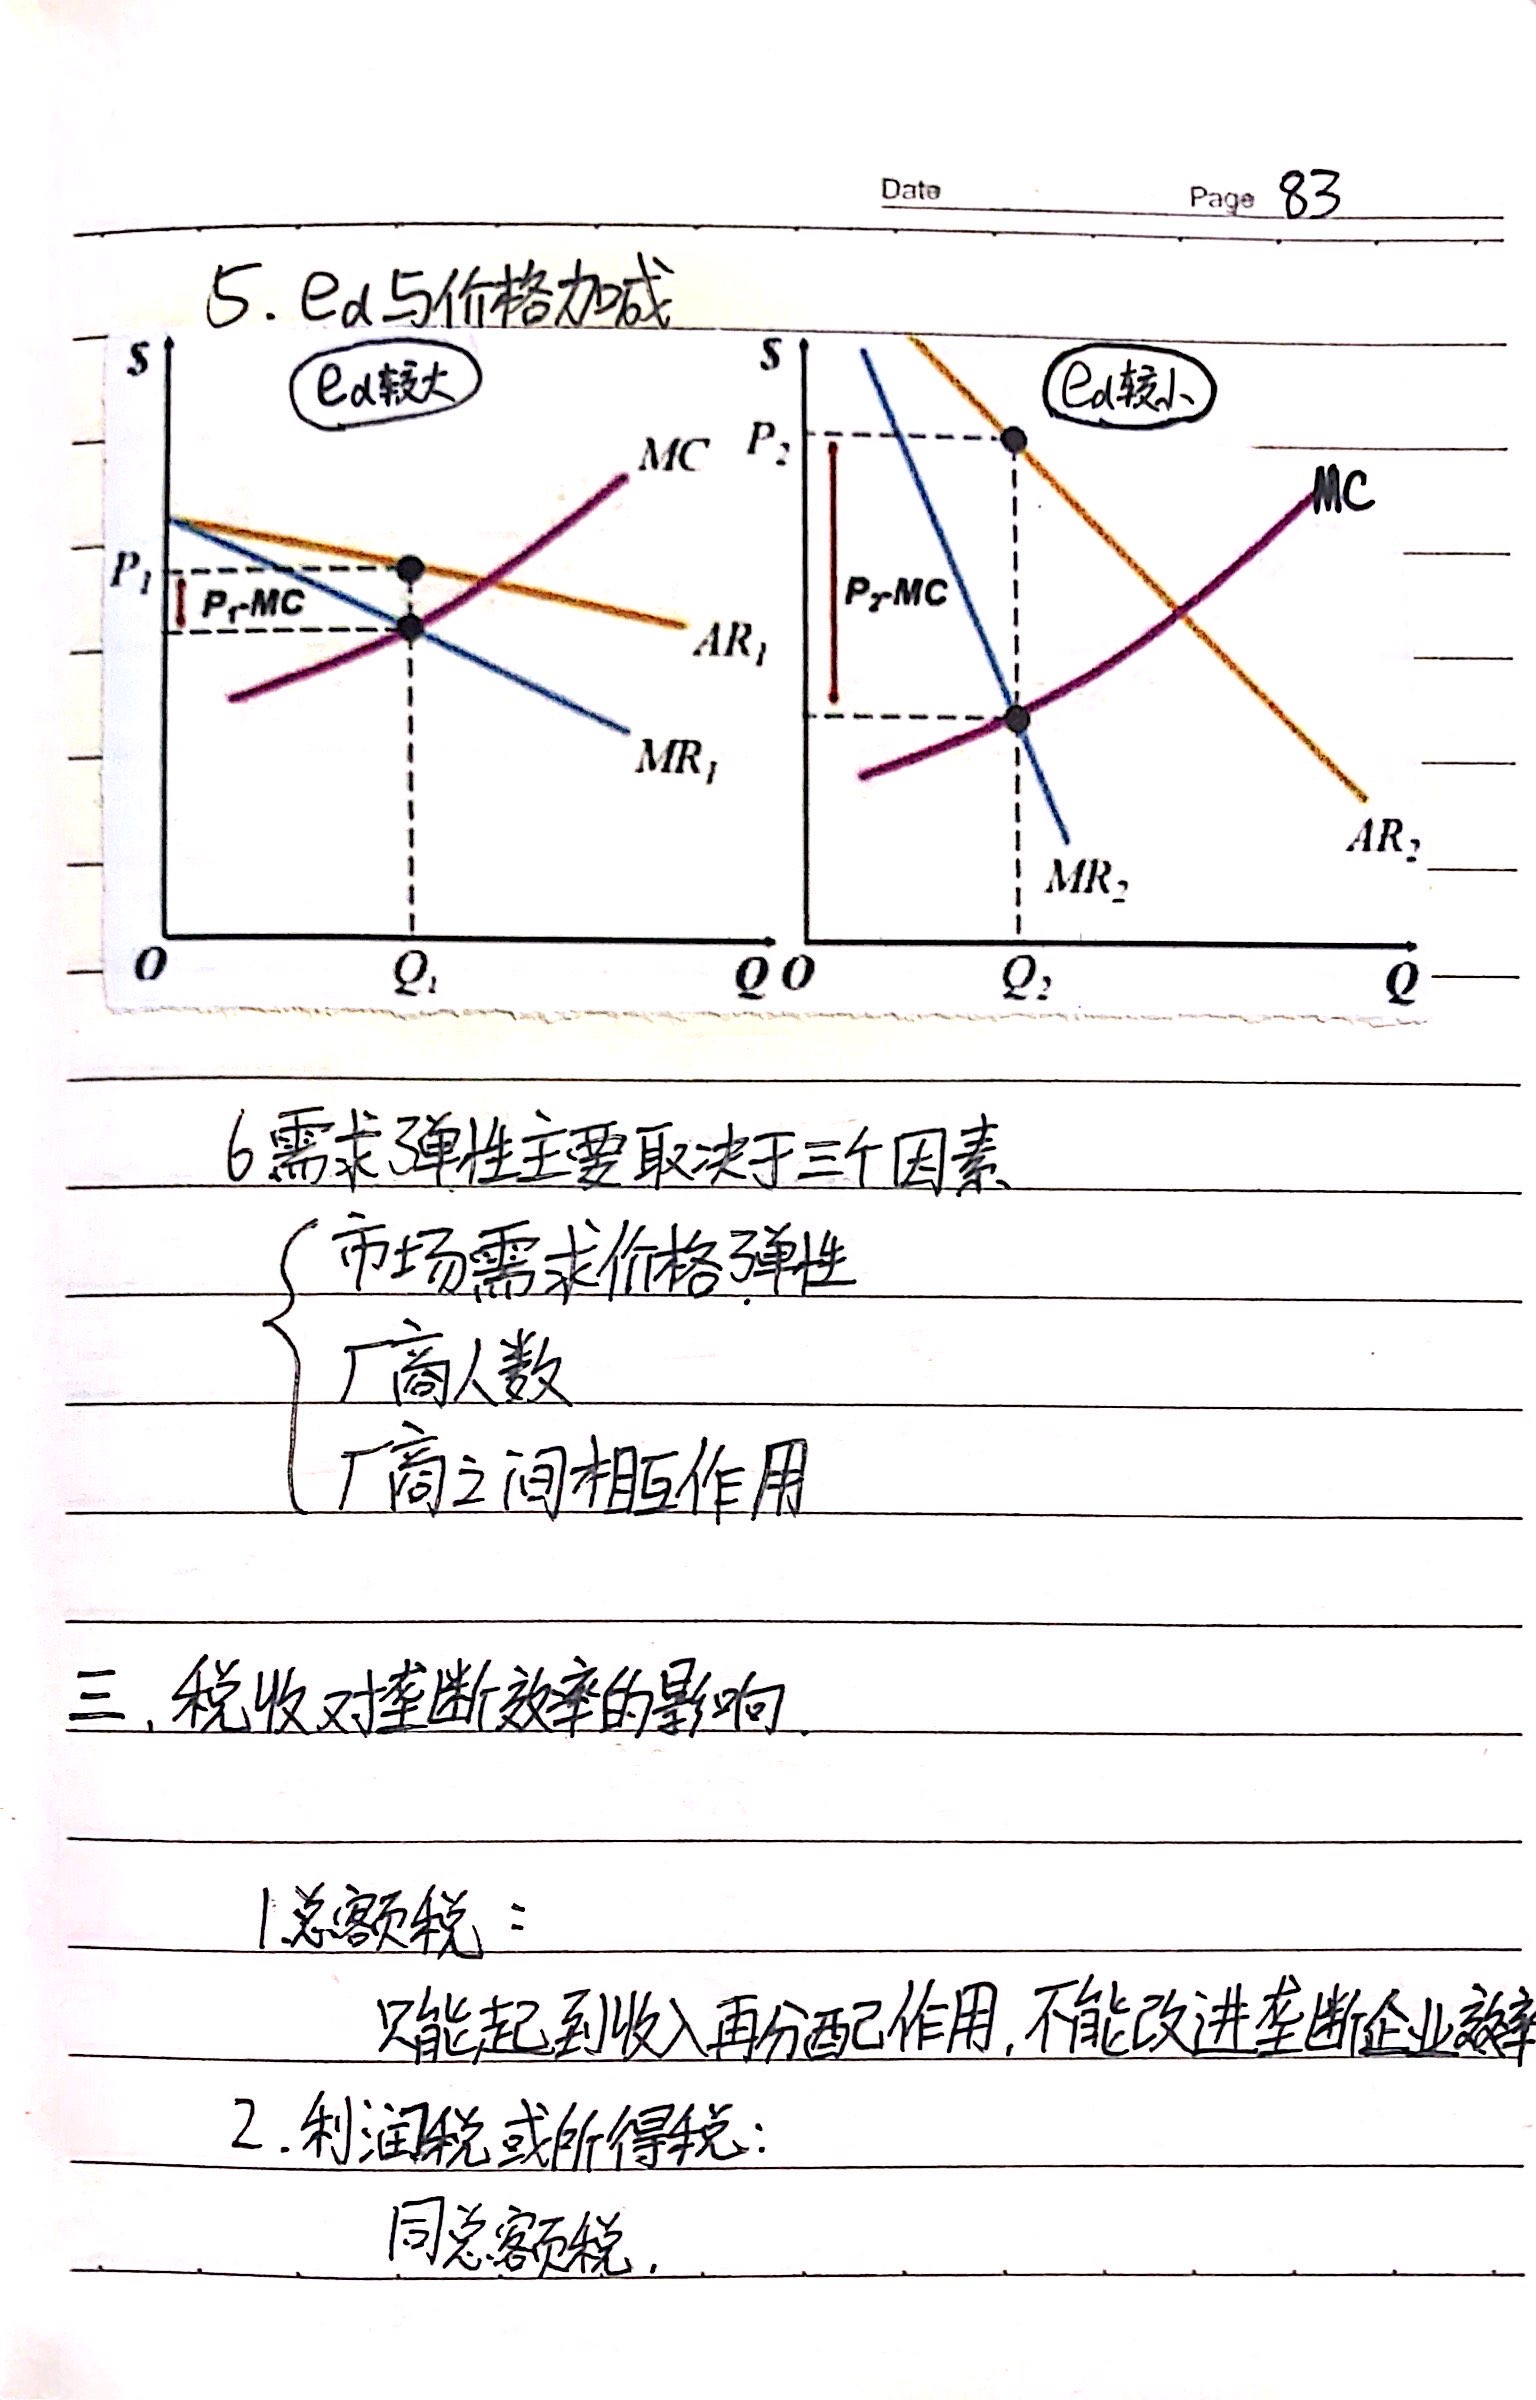 Date Page 83
5. ed与价格加减
$ ed较大
MC
P1
P1-MC
AR1
MR1
O Q1 Q
$ ed较小
P2
MC
P2-MC
AR2
MR2
O Q2 Q
6需求弹性主要取决于三个因素
市场需求价格弹性
厂商人数
厂商之间相互作用
三、税收对垄断效率的影响.
1总额税:
只能起到收入再分配作用,不能改进垄断企业效率
2.利润税或所得税:
同总额税.